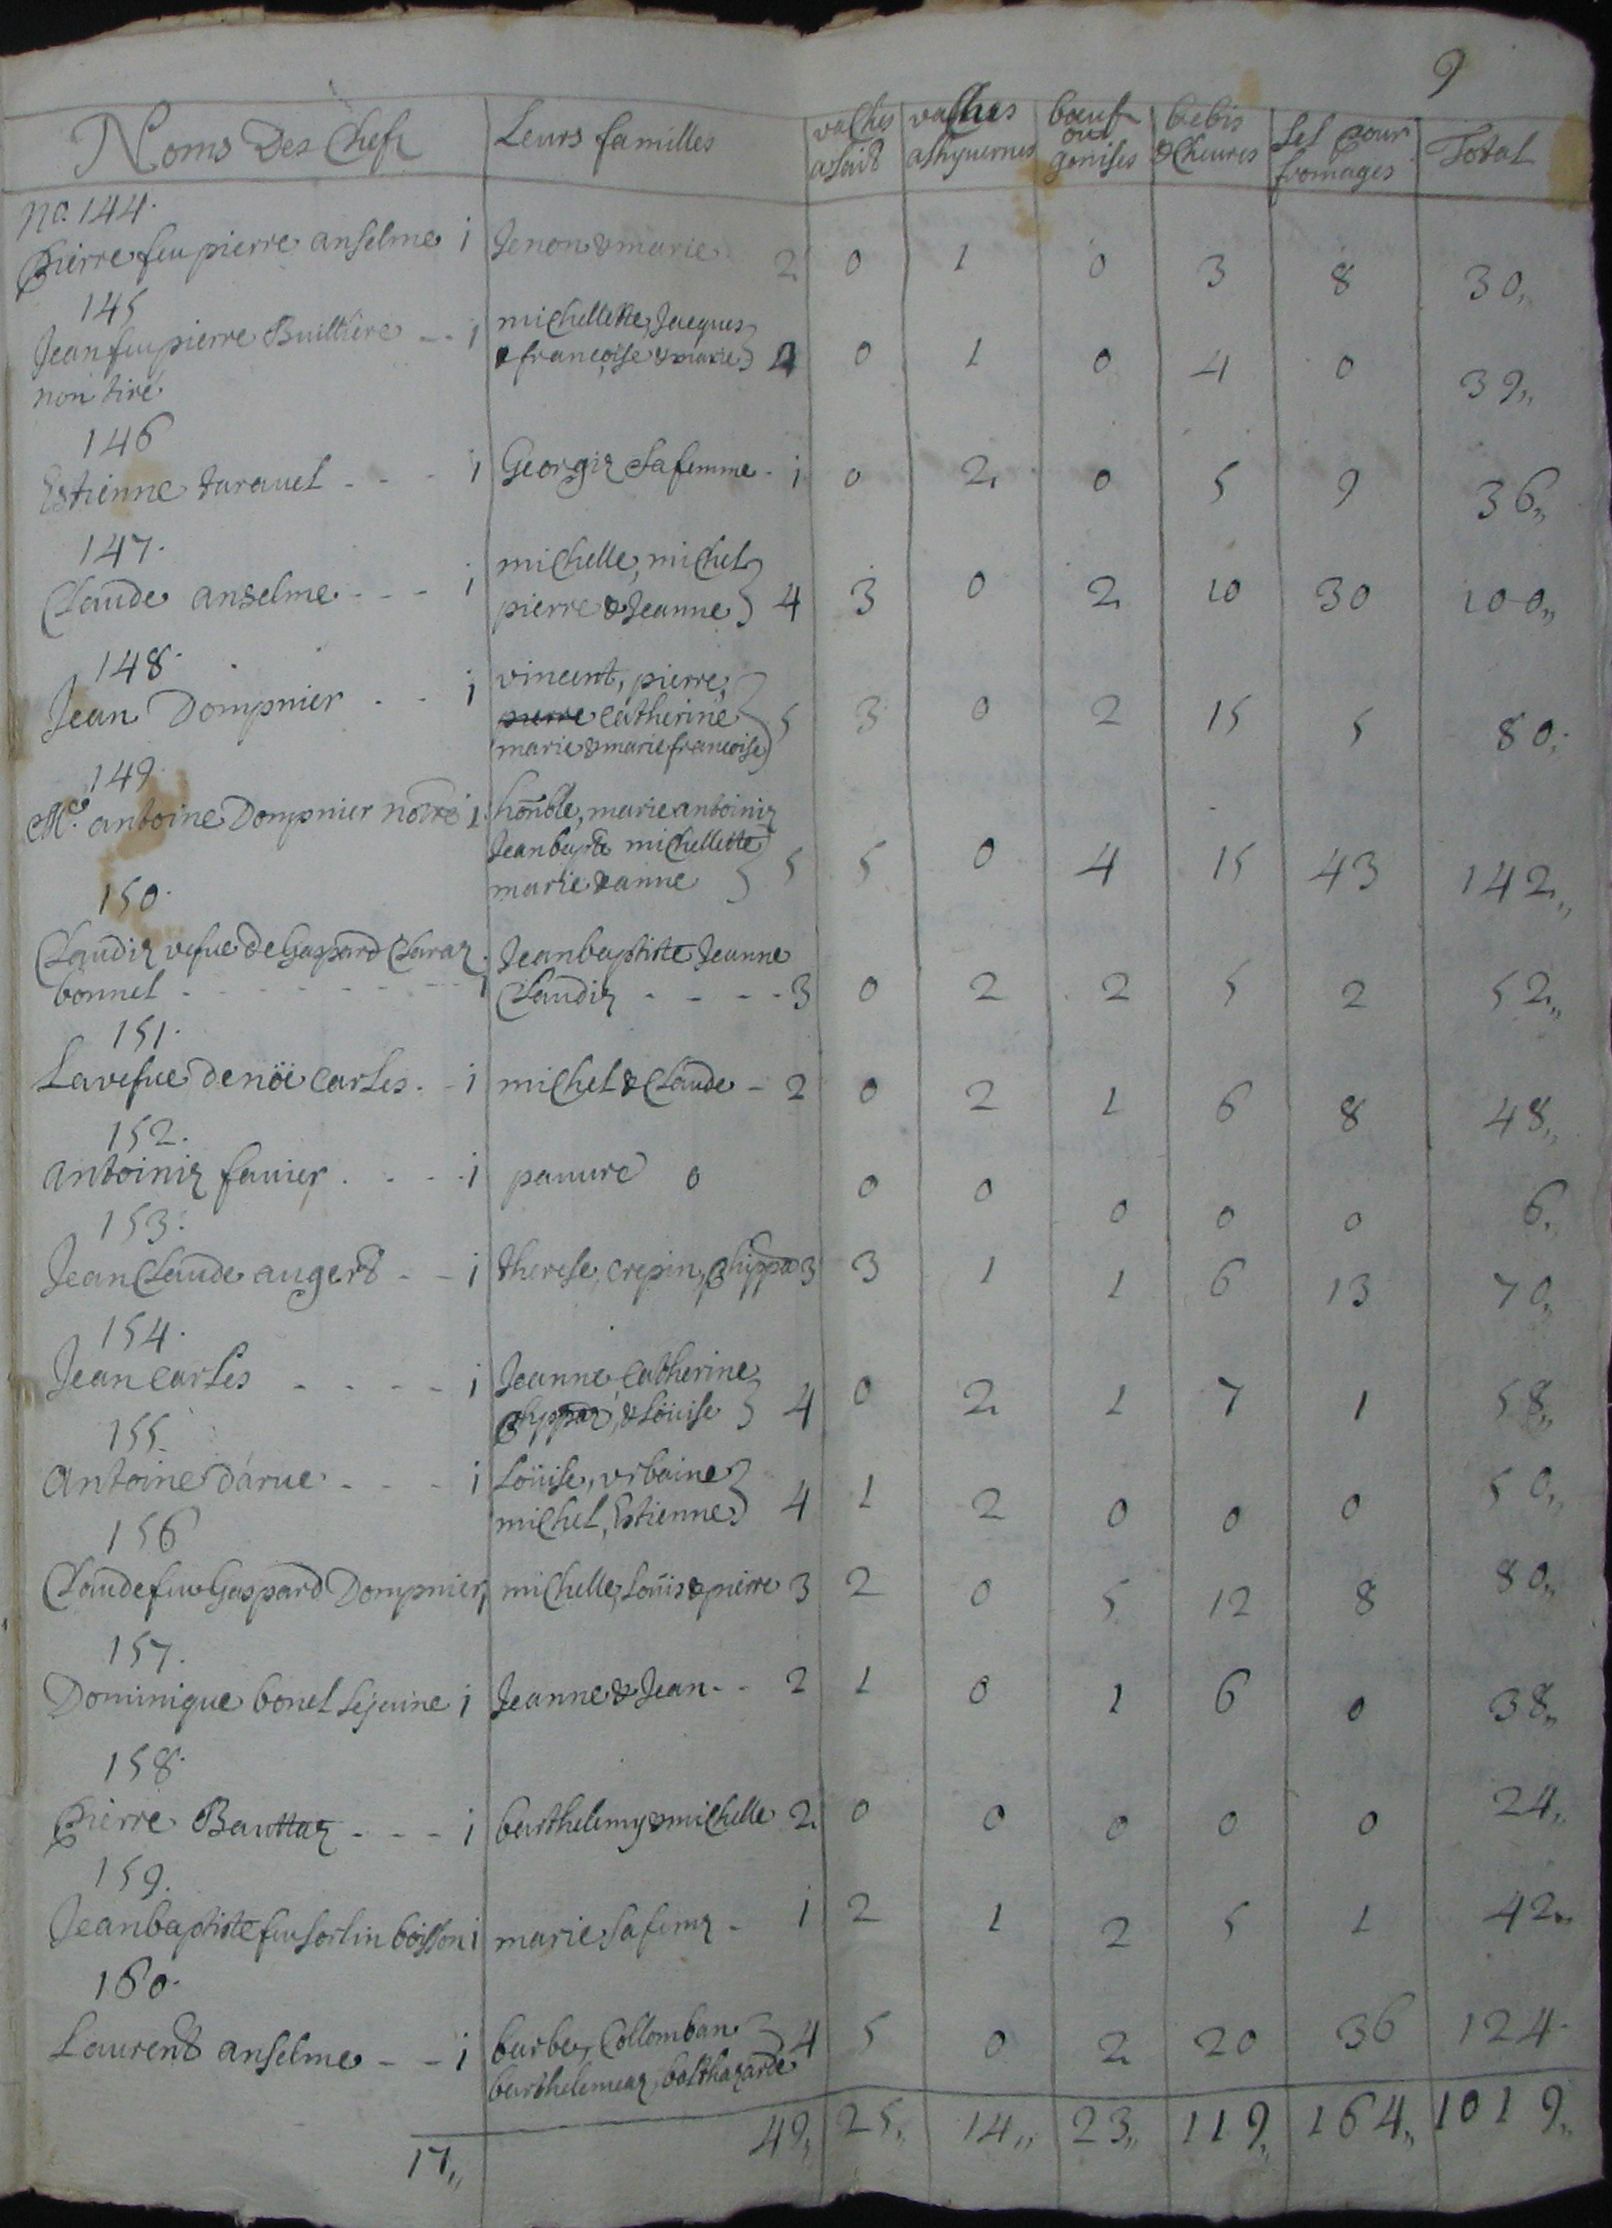 9
Noms Des Chefs | Leurs familles | vaches a lait | vaches a hyuernes | bœufs ou genises | bebis & cheures | Sel pour fromages | Total
No. 144.
pierre feu pierre anselme i | Jenon & marie 2 | 0 | 1 | 0 | 3 | 8 | 30,,
145
Jean feu pierre Buillhere -- i | michellette, Jacques
non tiré | & francoise & marie 4 | 0 | 1 | 0 | 4 | 0 | 39,,
146
Estienne tarauel - - - i | Georgiz sa femme - i | 0 | 2 | 0 | 5 | 9 | 36,,
147.
Claude anselme - - - i | michelle, michel
pierre & Jeanne 4 | 3 | 0 | 2 | 10 | 30 | 100,,
148.
Jean Dompnier - - i | vincent, pierre,
pierre catherine 5 | 3 | 0 | 2 | 15 | 5 | 80,
marie & marie francoise
149.
Me. antoine Dompnier notre i | honble, marie antoiniz
Jean bapte michellette 5 | 5 | 0 | 4 | 15 | 43 | 142,,
marie & anne
150.
Claudiz vefue de Gaspard Claraz | Jean baptiste Jeanne
bonnel - - - - - - - i | Claudiz - - - - 3 | 0 | 2 | 2 | 5 | 2 | 52,,
151.
La vefue de nöe carles - i | michel & Claude - 2 | 0 | 2 | 1 | 6 | 8 | 48,,
152.
antoiniz fauier . - - . i | pauure 0 | 0 | 0 | 0 | 0 | 0 | 6,
153.
Jean Claude augert - - i | therese, crepin, 3 | 3 | 1 | 1 | 6 | 13 | 70,
154.
Jean carles - - - - i | Jeanne, catherine
& Löuise 4 | 0 | 2 | 1 | 7 | 1 | 58,,
155.
antoine darue - - - i | Löuise, vrbaine
michel, Estienne 4 | 1 | 2 | 0 | 0 | 0 | 50,,
156
Claude feu Gaspard Dompnier i | michelle, Loüis & pierre 3 | 2 | 0 | 5 | 12 | 8 | 80,,
157.
Dominique bonel le jeuine i | Jeanne & Jean - - 2 | 1 | 0 | 1 | 6 | 0 | 38,,
158.
pierre Bauttaz - - - i | barthelemy & michelle 2 | 0 | 0 | 0 | 0 | 0 | 24,,
159.
Jean baptiste feu sorlin boisson i | marie sa femz - i | 2 | 1 | 2 | 5 | 1 | 42,,
160.
Laurent anselme - - i | barbe, Collomban 4 | 5 | 0 | 2 | 20 | 36 | 124.
barthelemeaz, balthazarde
17,, | 49,, | 25,, | 14,, | 23,, | 119,, | 164,, | 1019,,